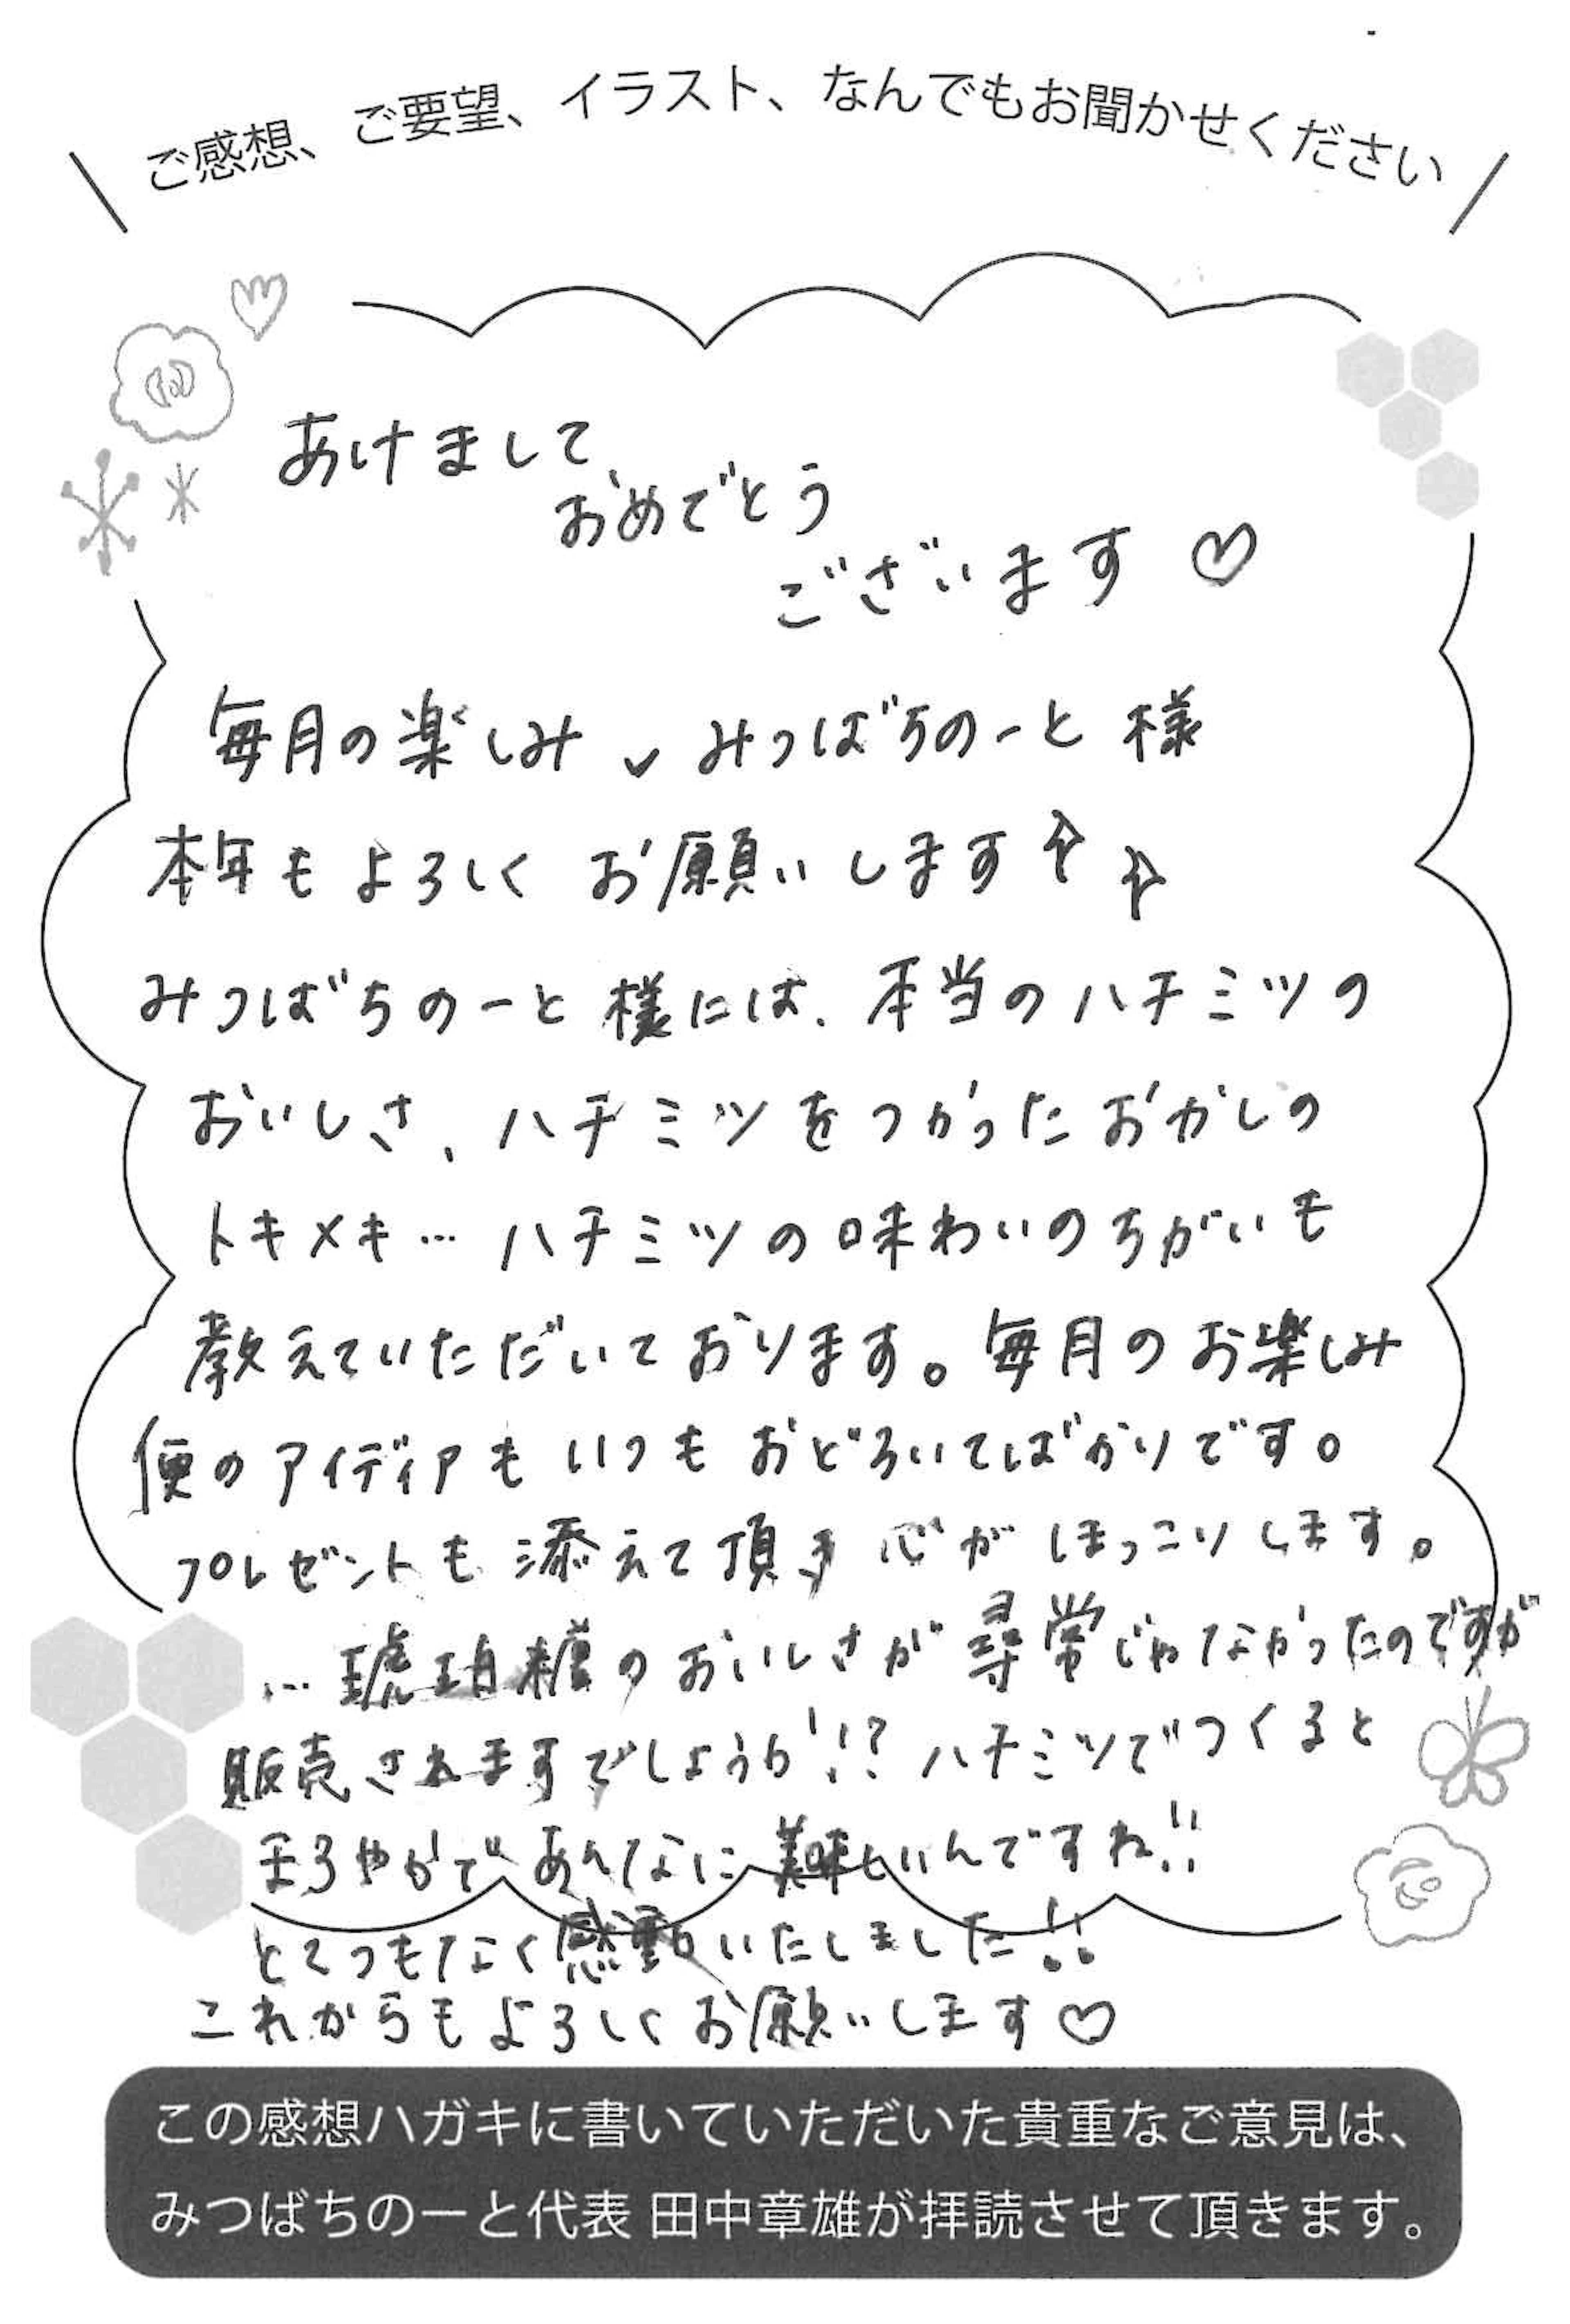 ご感想、ご要望、イラスト、なんでもお聞かせください
あけまして
おめでとう
ございます♡
毎月の楽しみ、みつばちのーと様
本年もよろしくお願いします
みつばちのーと様には、本当のハチミツの
おいしさ、ハチミツをつかったおかしの
トキメキ…ハチミツの味わいのちがいも
教えていただいております。毎月のお楽しみ
便のアイディアもいつもおどろいてばかりです。
プレゼントも添えて頂き心がほっこりします。
…琥珀糖のおいしさが尋常じゃなかったのですが
販売されますでしょうか!!?ハチミツでつくると
まろやかであんなに美味しいんですね!!
とてつもなく感動いたしました!!
これからもよろしくお願いします♡
この感想ハガキに書いていただいた貴重なご意見は、
みつばちのーと代表 田中章雄が拝読させて頂きます。